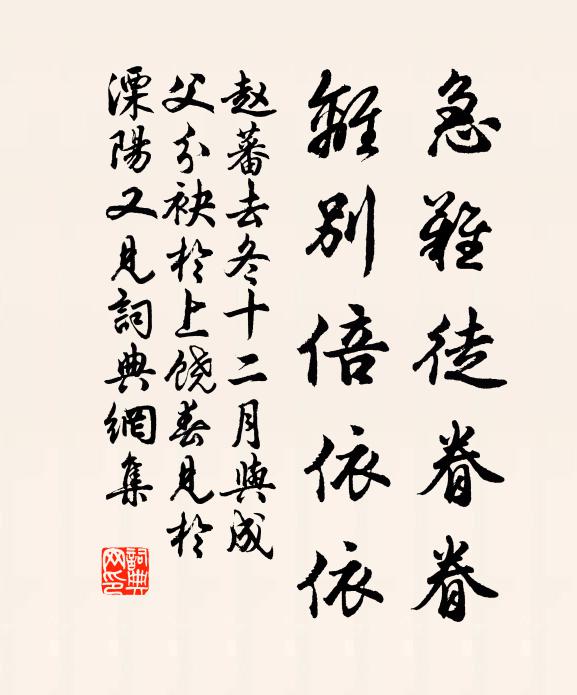 急難徒眷眷
離別倍依依
赵蕃去冬十二月與成
父分袂於上饶春見於
溧陽又見詞典網集
詞典网印